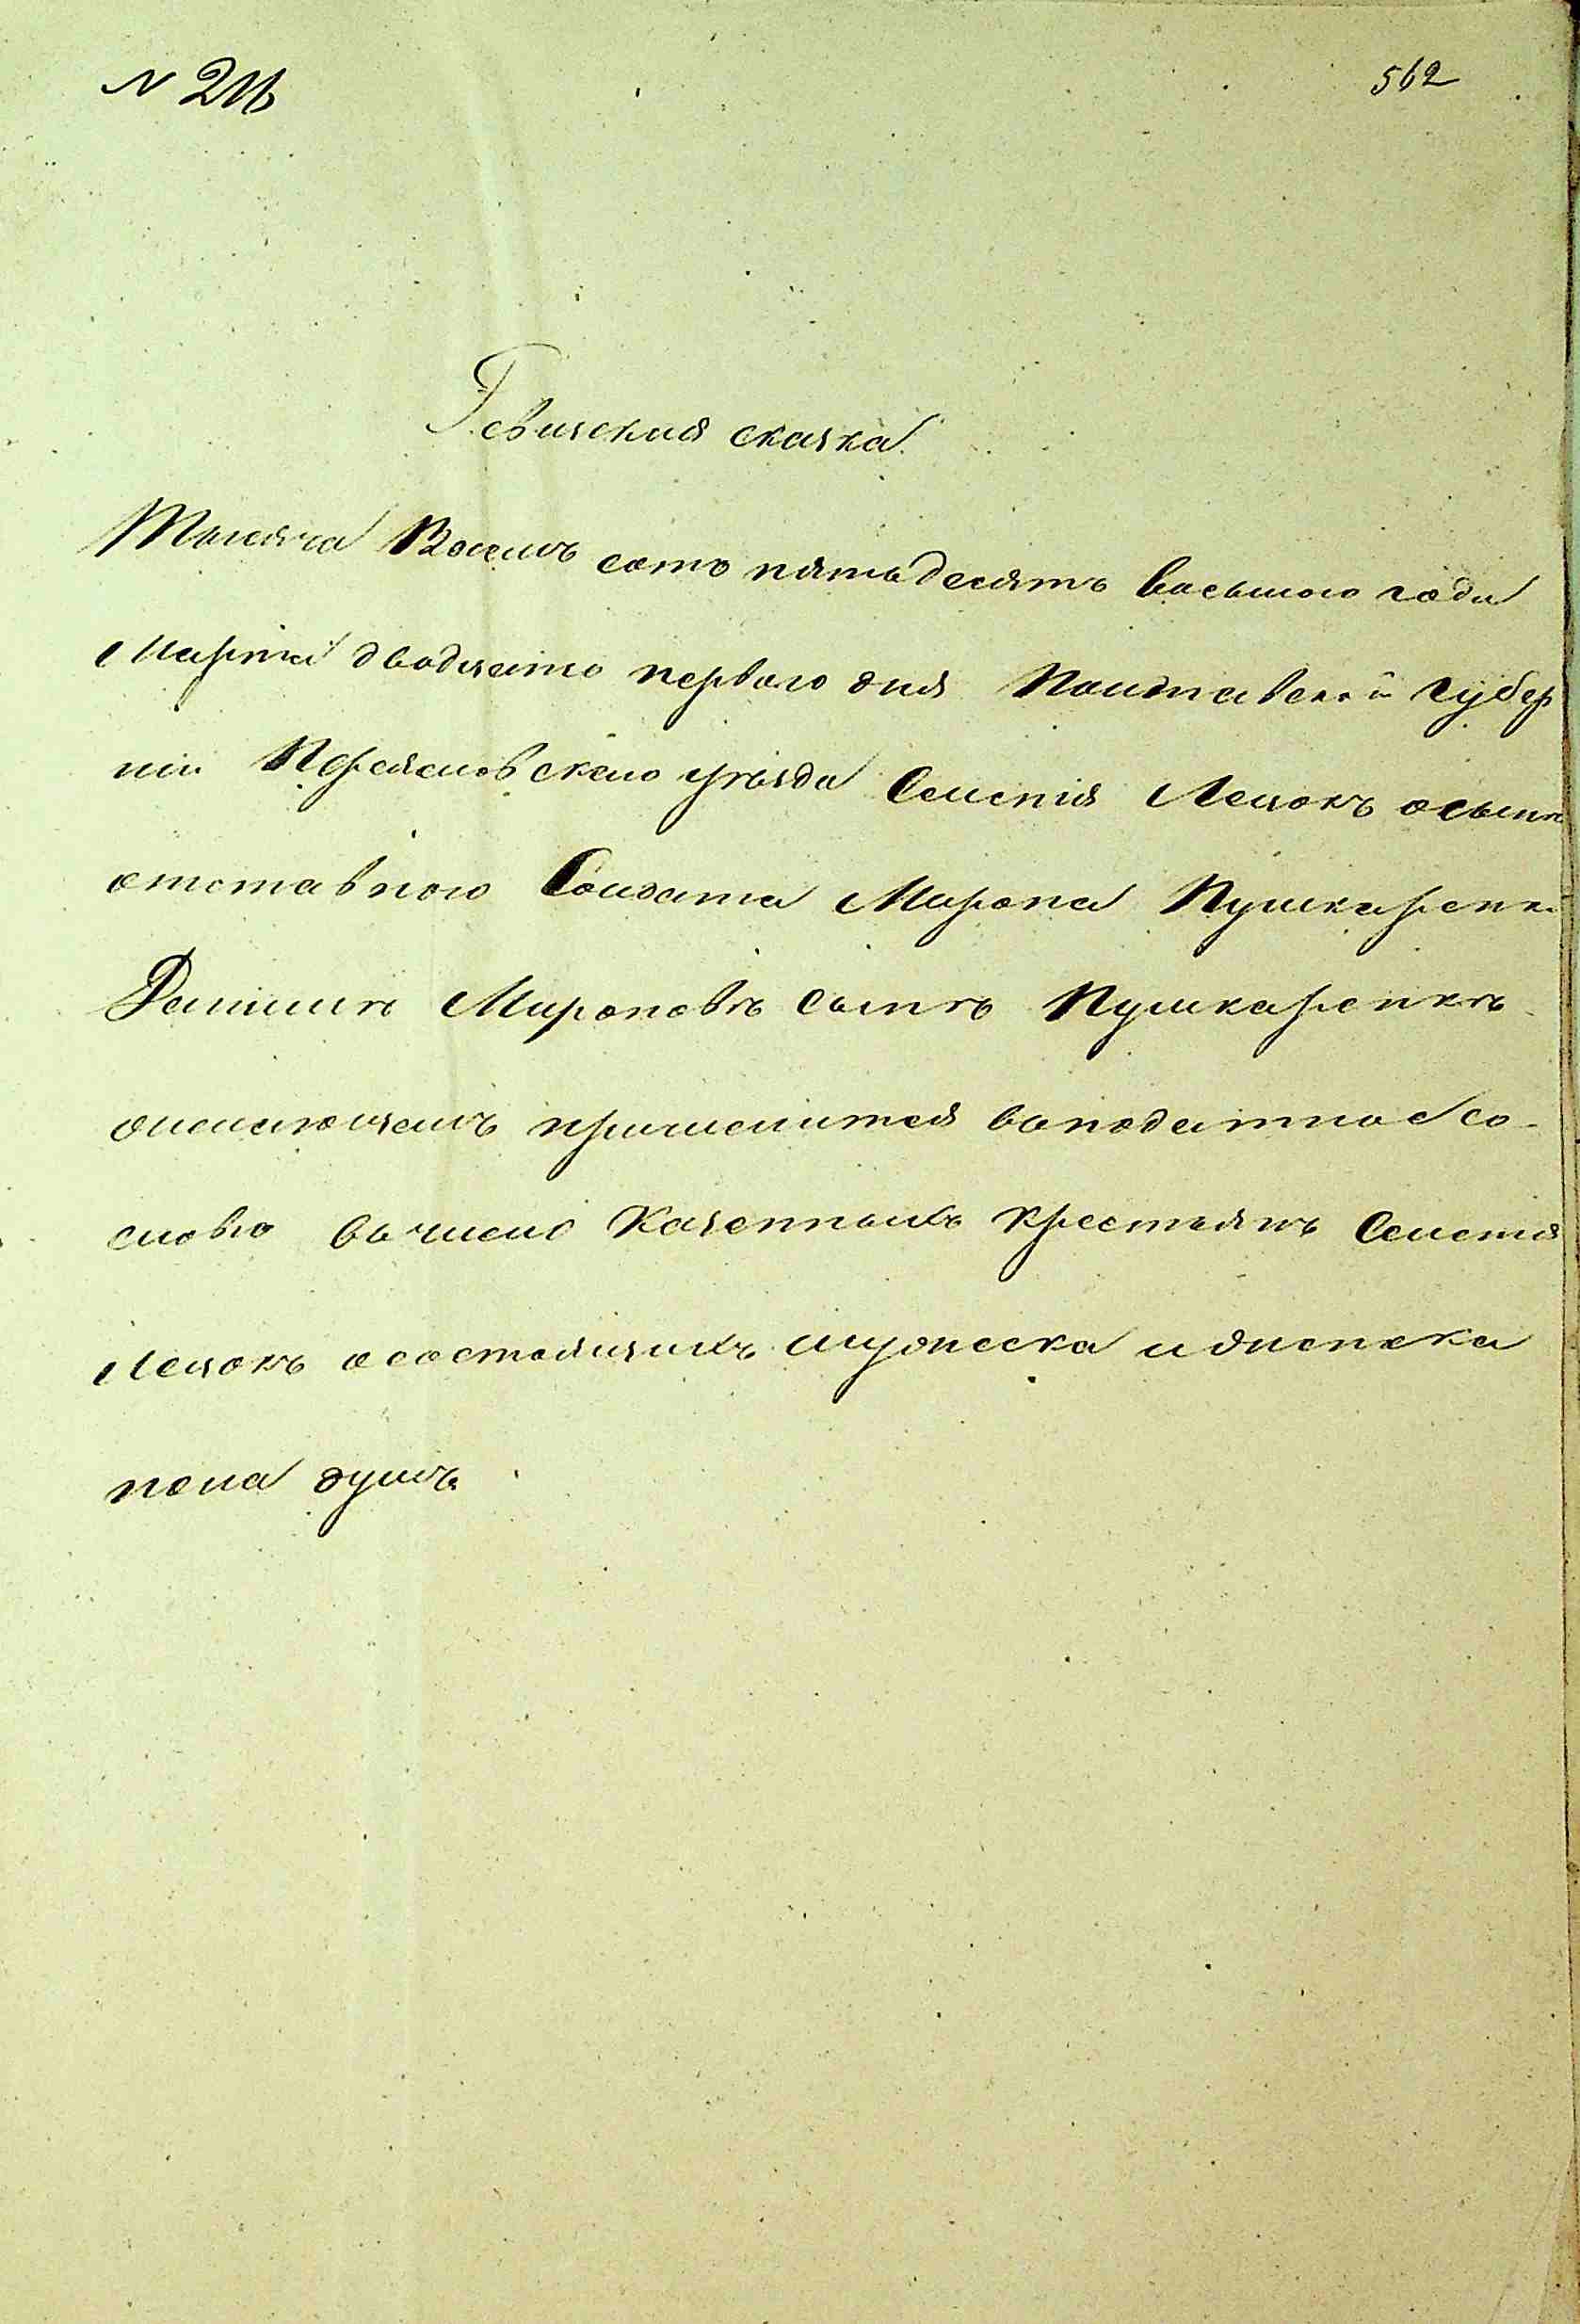 N 211
562
Ревизская сказка
Тысяча Восемъ сотъ пятьдесятъ восьмого года
Марта двадцать перваго дня Полтавской губер
нии Переяславскаго уѣзда Селенія Лецокъ осынѣ
отставного Солдата Мирона Пушкаренка
Мироновѣ сынѣ Пушкаренкѣ
причислится воподатное со-
словіе вьчисло Казенныхъ крестьянъ Селенія
Лецокъ осостоящихъ мужеска и женска
пола душъ